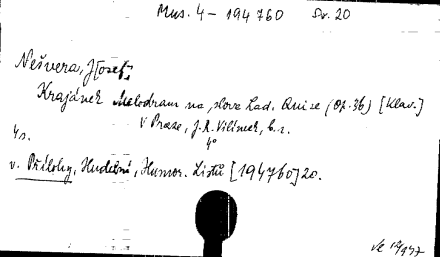 Mus. 4 - 194760 Sv. 20
Nešvera, J[osef]
Krajánek Melodram na slova Lad. Quise (Op. 36) [klav.]
V Praze, J. R. Vilímek, b. r.
4°
4 s.
v. Přílohy, Hudební, Humor. Listů [194760] 20.